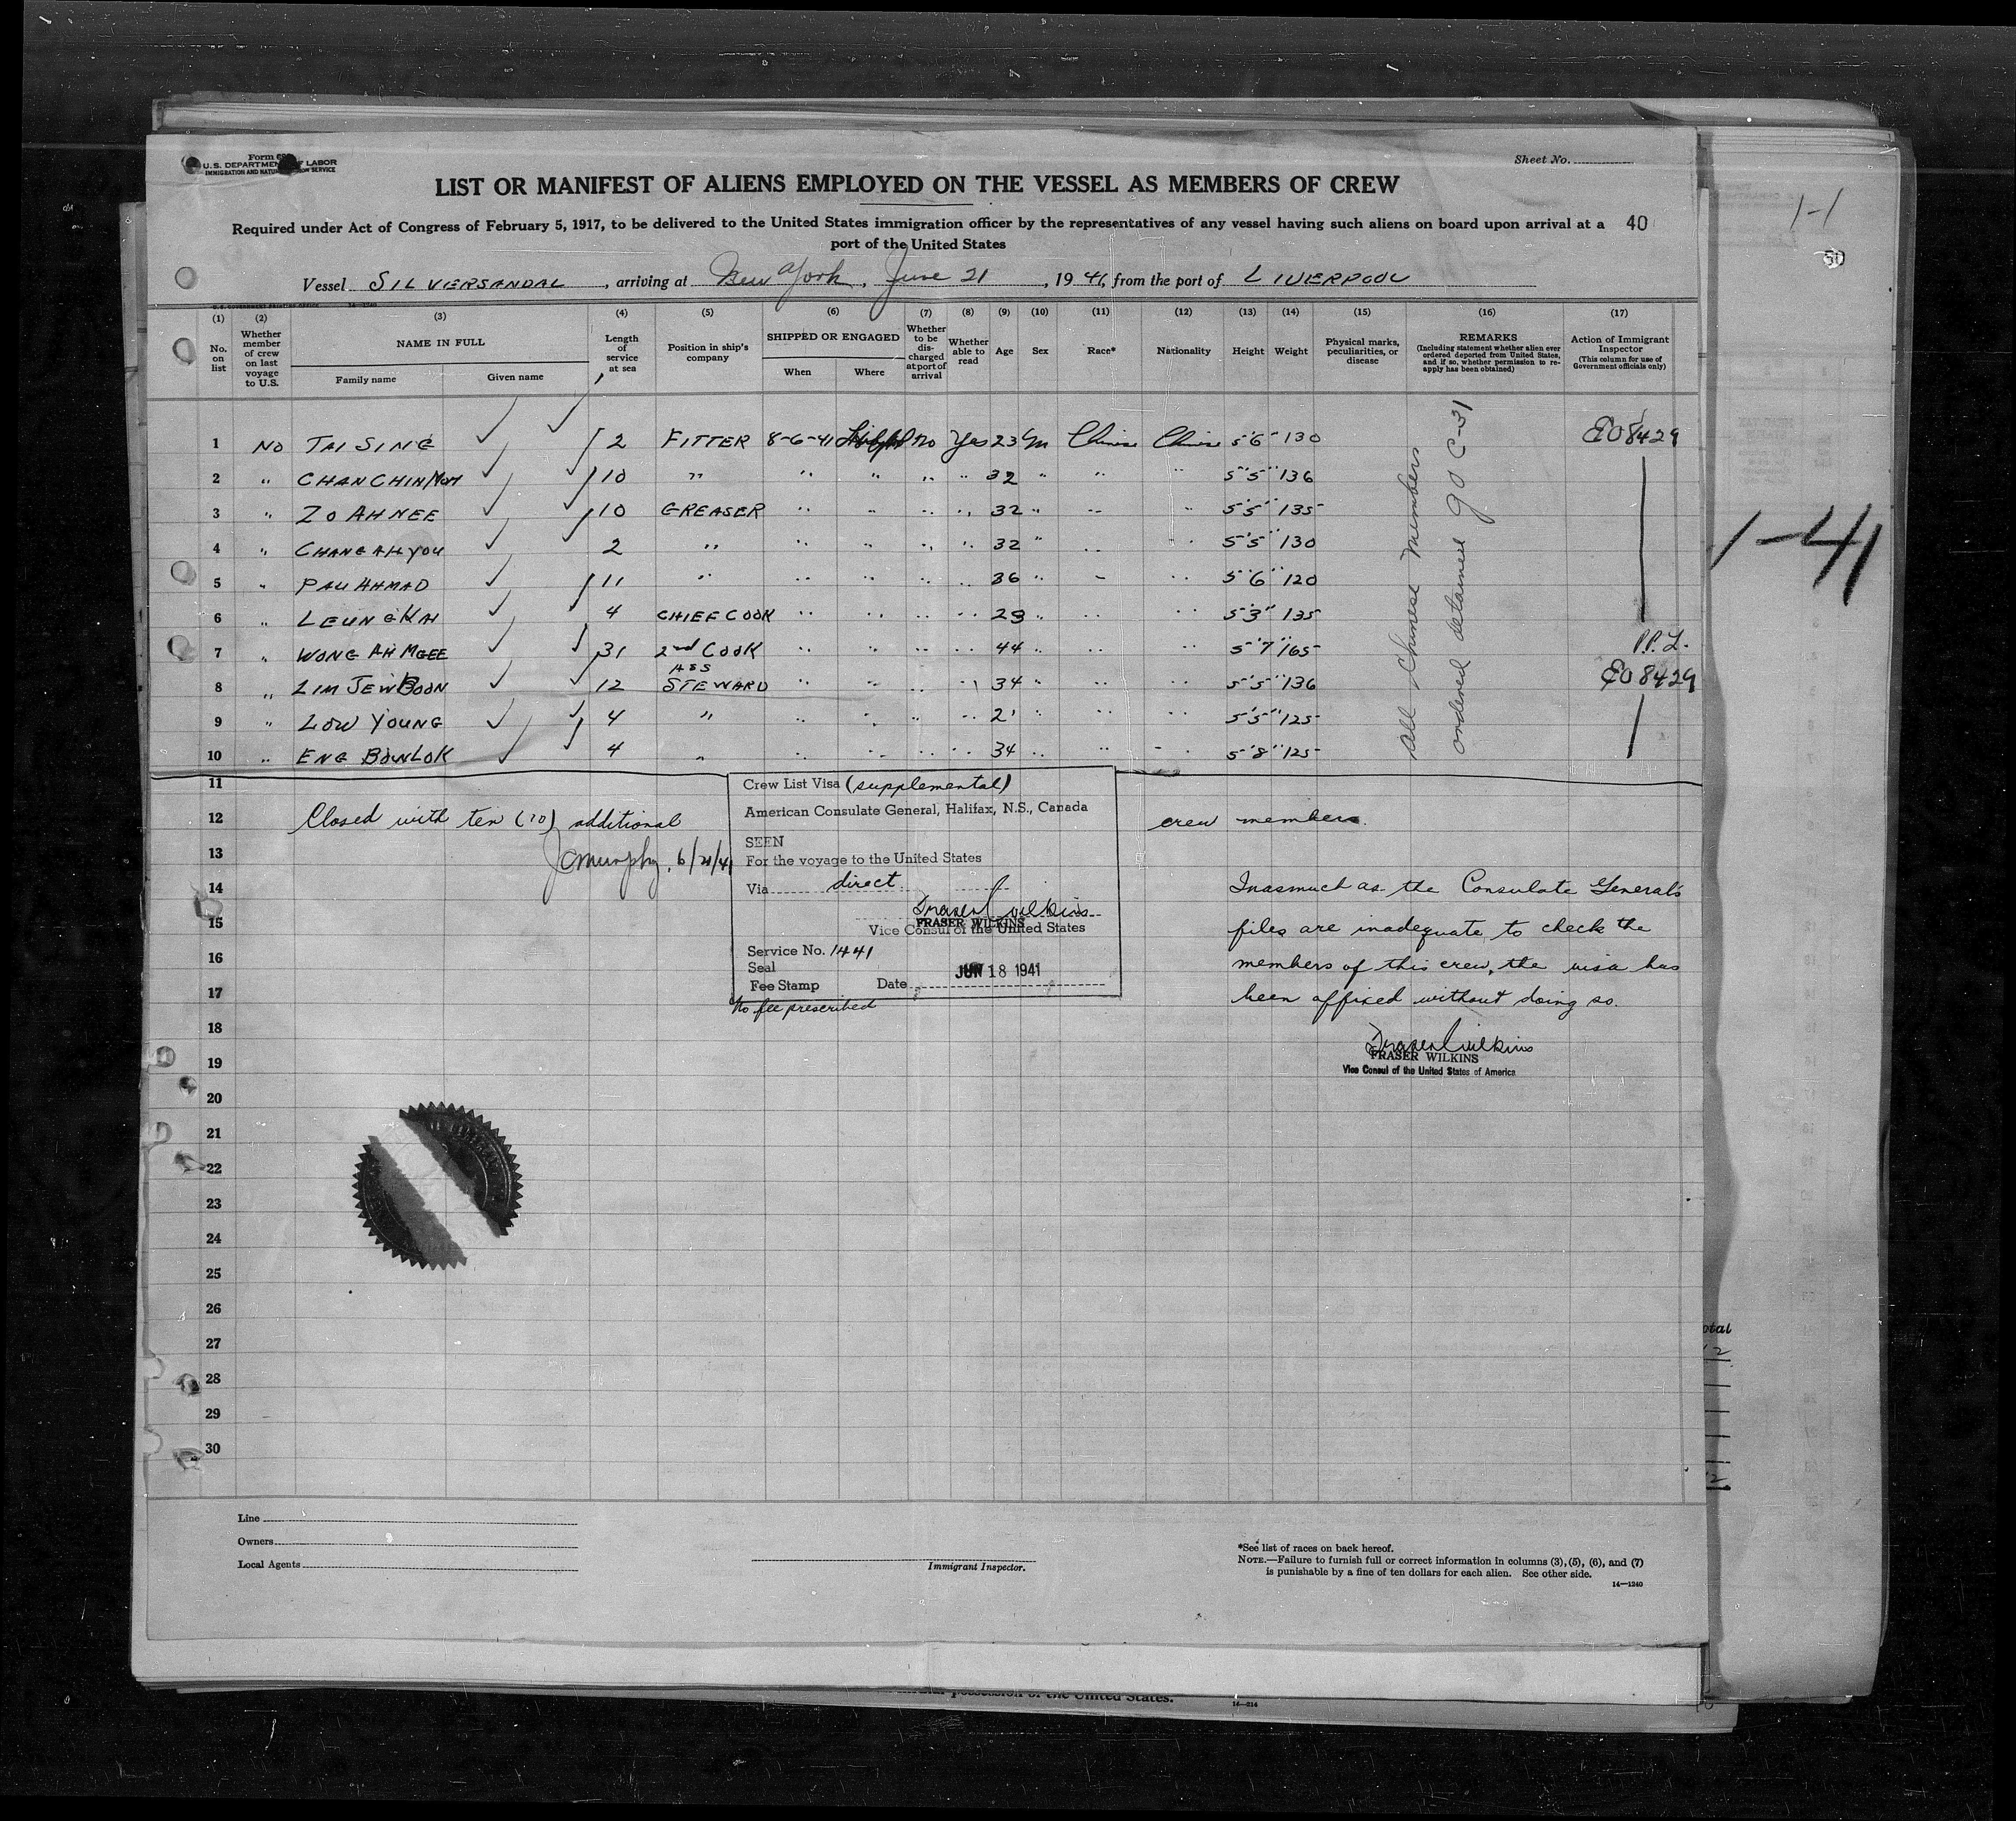 Form 6
U. S. DEPARTMENT OF LABOR
IMMIGRATION AND NATURALIZATION SERVICE
Sheet No.
LIST OR MANIFEST OF ALIENS EMPLOYED ON THE VESSEL AS MEMBERS OF CREW
Required under Act of Congress of February 5, 1917, to be delivered to the United States immigration officer by the representatives of any vessel having such aliens on board upon arrival at a 40
port of the United States
Vessel SILVERSANDAL, arriving at New York, June 21, 1941, from the port of LIVERPOOL
U. S. GOVERNMENT PRINTING OFFICE 14—1240
(1) (2) (3) (4) (5) (6) (7) (8) (9) (10) (11) (12) (13) (14) (15) (16) (17)
No. on list
Whether member of crew on last voyage to U.S.
NAME IN FULL
Family name Given name
Length of service at sea
Position in ship's company
SHIPPED OR ENGAGED
When Where
Whether to be discharged at port of arrival
Whether able to read
Age
Sex
Race*
Nationality
Height
Weight
Physical marks, peculiarities, or disease
REMARKS
(Including statement whether alien ever ordered deported from United States, and if so, whether permission to re-apply has been obtained)
Action of Immigrant Inspector
(This column for use of Government officials only)
1 NO TAI SING 2 FITTER 8-6-41 no Yes 23 M Chinese Chinese 5'6" 130 EO8429
2 " CHAN CHIN 10 " " " " " 32 " " " 5'5" 136
3 " ZO AH NEE 10 GREASER " " " " 32 " " " 5'5" 135
4 " CHANG AH YOU 2 " " " " " 32 " " " 5'5" 130
5 " PAU AHMAD 11 " " " " " 36 " " " 5'6" 120
6 " LEUNG KAI 4 CHIEF COOK " " " " 23 " " " 5'3" 135
7 " WONG AH MGEE 31 2nd COOK " " " " 44 " " " 5'7" 165 P.P.L.
8 " LIM JEW BOON 12 ASS STEWARD " " " " 34 " " " 5'5" 136 EO8429
9 " LOW YOUNG 4 " " " " " 21 " " " 5'5" 125
10 " ENG BOWLOK 4 " " " " " 34 " " " 5'8" 125
All Chinese members
ordered detained 90 C-31
11
12
13
14
15
16
17
18
19
20
21
22
23
24
25
26
27
28
29
30
Closed with ten (10) additional crew members.
JCMurphy, 6/21/41
Crew List Visa (supplemental)
American Consulate General, Halifax, N.S., Canada
SEEN
For the voyage to the United States
Via direct
Fraser Wilkins
FRASER WILKINS
Vice Consul of the United States
Service No. 1441
Seal
Fee Stamp Date JUN 18 1941
No fee prescribed
Inasmuch as the Consulate General's
files are inadequate to check the
members of this crew, the visa has
been affixed without doing so.
Fraser Wilkins
FRASER WILKINS
Vice Consul of the United States of America
Line
Owners
Local Agents
Immigrant Inspector.
*See list of races on back hereof.
NOTE.—Failure to furnish full or correct information in columns (3), (5), (6), and (7)
is punishable by a fine of ten dollars for each alien. See other side.
14—1240
possession of the United States.
1-1
50
1-41